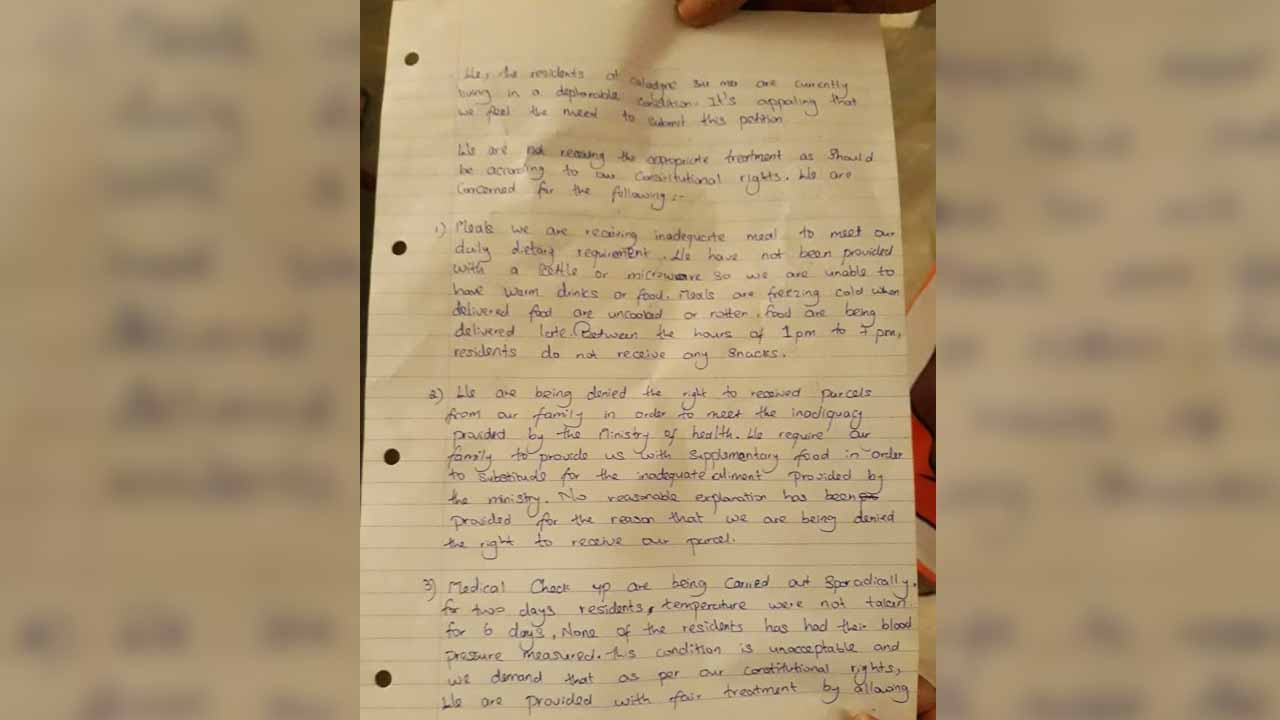 We, the residents at Calodyne Sur mer are currently
living in a deplorable condition. It's appaling that
we feel the need to submit this petition
We are not receiving the appropriate treatment as should
be according to our Constitutional rights. We are
Concerned for the following :-
1) Meals we are receiving inadequate meal to meet our
daily dietary requirement. We have not been provided
with a kettle or microwave so we are unable to
have warm drinks or food. Meals are freezing cold when
delivered food are uncooked or rotten. food are being
delivered late. Between the hours of 1pm to 7pm,
residents do not receive any snacks.
2) We are being denied the right to received parcels
from our family in order to meet the inadiquacy
provided by the Ministry of health. We require our
family to provide us with supplementary food in order
to substitude for the inadequate aliment provided by
the ministry. No reasonable explanation has been
provided for the reason that we are being denied
the right to receive our parcel.
3) Medical Check up are being carried out sporadically.
for two days residents, temperature were not taken.
for 6 days, None of the residents has had their blood
pressure measured. This condition is unacceptable and
we demand that as per our constitutional rights,
We are provided with fair treatment by allowing